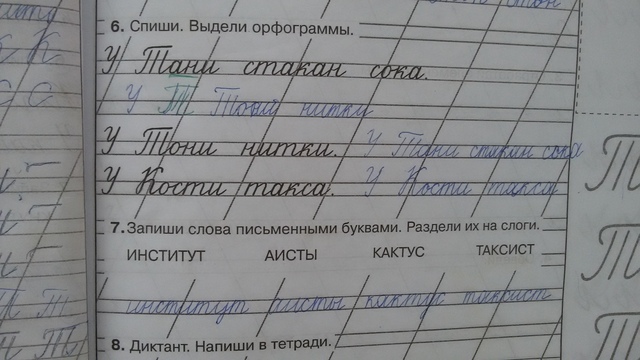 6. Спиши. Выдели орфограммы.
У Тани стакан сока.
У Т Тони нитки
У Тони нитки. У Тани стакан сока
У Кости такса. У Кости такса
7. Запиши слова письменными буквами. Раздели их на слоги.
ИНСТИТУТ АИСТЫ КАКТУС ТАКСИСТ
институт аисты кактус таксист
8. Диктант. Напиши в тетради.